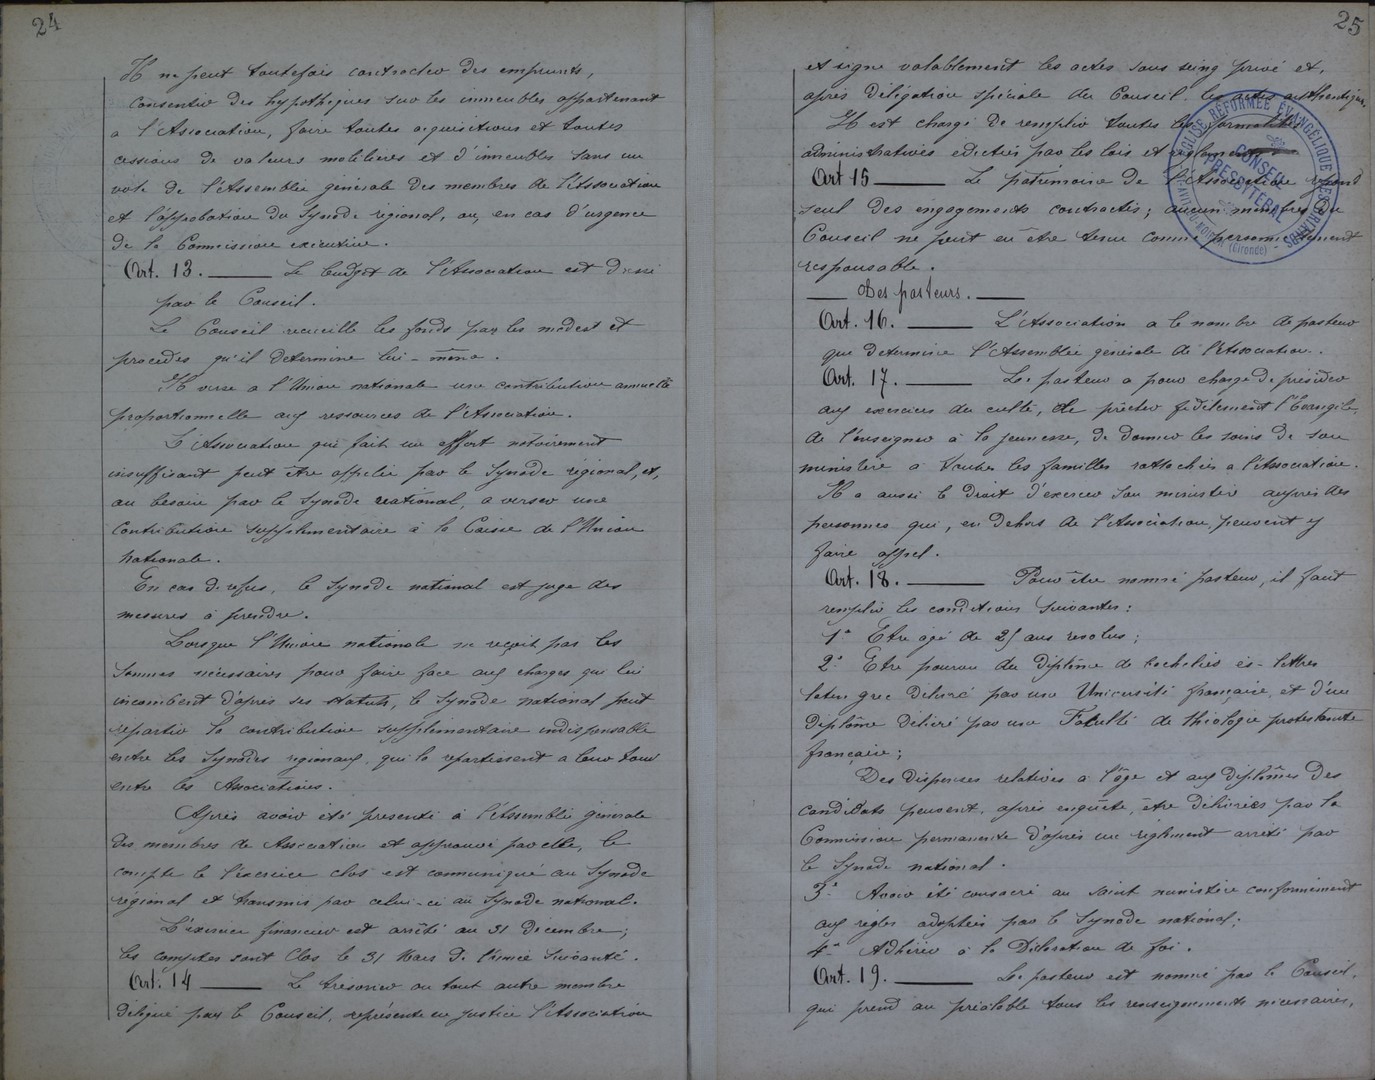 24
Il ne peut toutefois contracter des emprunts,
consentir des hypothèques sur les immeubles appartenant
a l'Association, faire toutes acquisitions et toutes
cessions de valeurs mobilières et d'immeubles sans un
vote de l'Assemblée générale des membres de l'Association
et l'approbation du Synode régional, ou, en cas d'urgence
de la Commission exécutive.
Art. 13. Le budget de l'Association est dressé
par le Conseil.
Le Conseil recueille les fonds par les modes et
procédés qu'il détermine lui-même.
Il verse a l'Union nationale une contribution annuelle
proportionnelle aux ressources de l'Association.
L'Association qui fait un effort notoirement
insuffisant peut être appelée par le Synode régional, et,
au besoin par le Synode national, a verser une
contribution supplémentaire à la Caisse de l'Union
Nationale.
En cas de refus, le Synode national est juge des
mesures à prendre.
Lorsque l'Union nationale ne reçoit pas les
sommes nécessaires pour faire face aux charges qui lui
incombent d'après ses statuts, le Synode national peut
répartir la contribution supplémentaire indispensable
entre les Synodes régionaux, qui la répartissent a leur tour
entre les Associations.
Après avoir été présenté à l'Assemblée générale
des membres de Association et approuvé par elle, le
compte de l'exercice clos est communiqué au Synode
régional et transmis par celui-ci au Synode national.
L'exercice financier est arrêté au 31 décembre;
les comptes sont clos le 31 Mars de l'année suivante.
Art. 14 Le trésorier ou tout autre membre
délégué par le Conseil, représente en justice l'Association
25
et signe valablement les actes sous seing privé et,
après délégation spéciale du Conseil, les actes authentiques.
Il est chargé de remplir toutes les formalités
administratives édictées par les lois et règlements
Art 15 Le patrimoine de l'Association répond
seul des engagements contractés; aucun membre du
Conseil ne peut en être tenu comme personnellement
responsable.
Des pasteurs.
Art. 16. L'Association a le nombre de pasteur
que détermine l'Assemblée générale de l'Association.
Art. 17. Le pasteur a pour charge de présider
aux exercices du culte, de prêcher fidèlement l'Evangile,
de l'enseigner à la jeunesse, de donner les soins de son
ministère a toutes les familles rattachées a l'Association.
Il a aussi le droit d'exercer son ministère auprès des
personnes qui, en dehors de l'Association, peuvent y
faire appel.
Art. 18. Pour être nommé pasteur, il faut
remplir les conditions suivantes:
1° Etre âgé de 25 ans révolus;
2° Etre pourvu du diplôme de bachelier ès-lettres
latin grec délivré par une Université française, et d'un
diplôme délivré par une Faculté de théologie protestante
française;
Des dispenses relatives a l'âge et aux diplômes des
candidats peuvent, après enquête, être délivrées par la
Commission permanente d'après un règlement arrêté par
le Synode national.
3° Avoir été consacré au Saint ministère conformément
aux règles adoptées par le Synode national;
4° Adhérer à la Déclaration de foi.
Art. 19. Le pasteur est nommé par le Conseil,
qui prend au préalable tous les renseignements nécessaires,
ÉGLISE RÉFORMÉE ÉVANGÉLIQUE
CONSEIL
PRESBYTÉRAL
(Gironde)